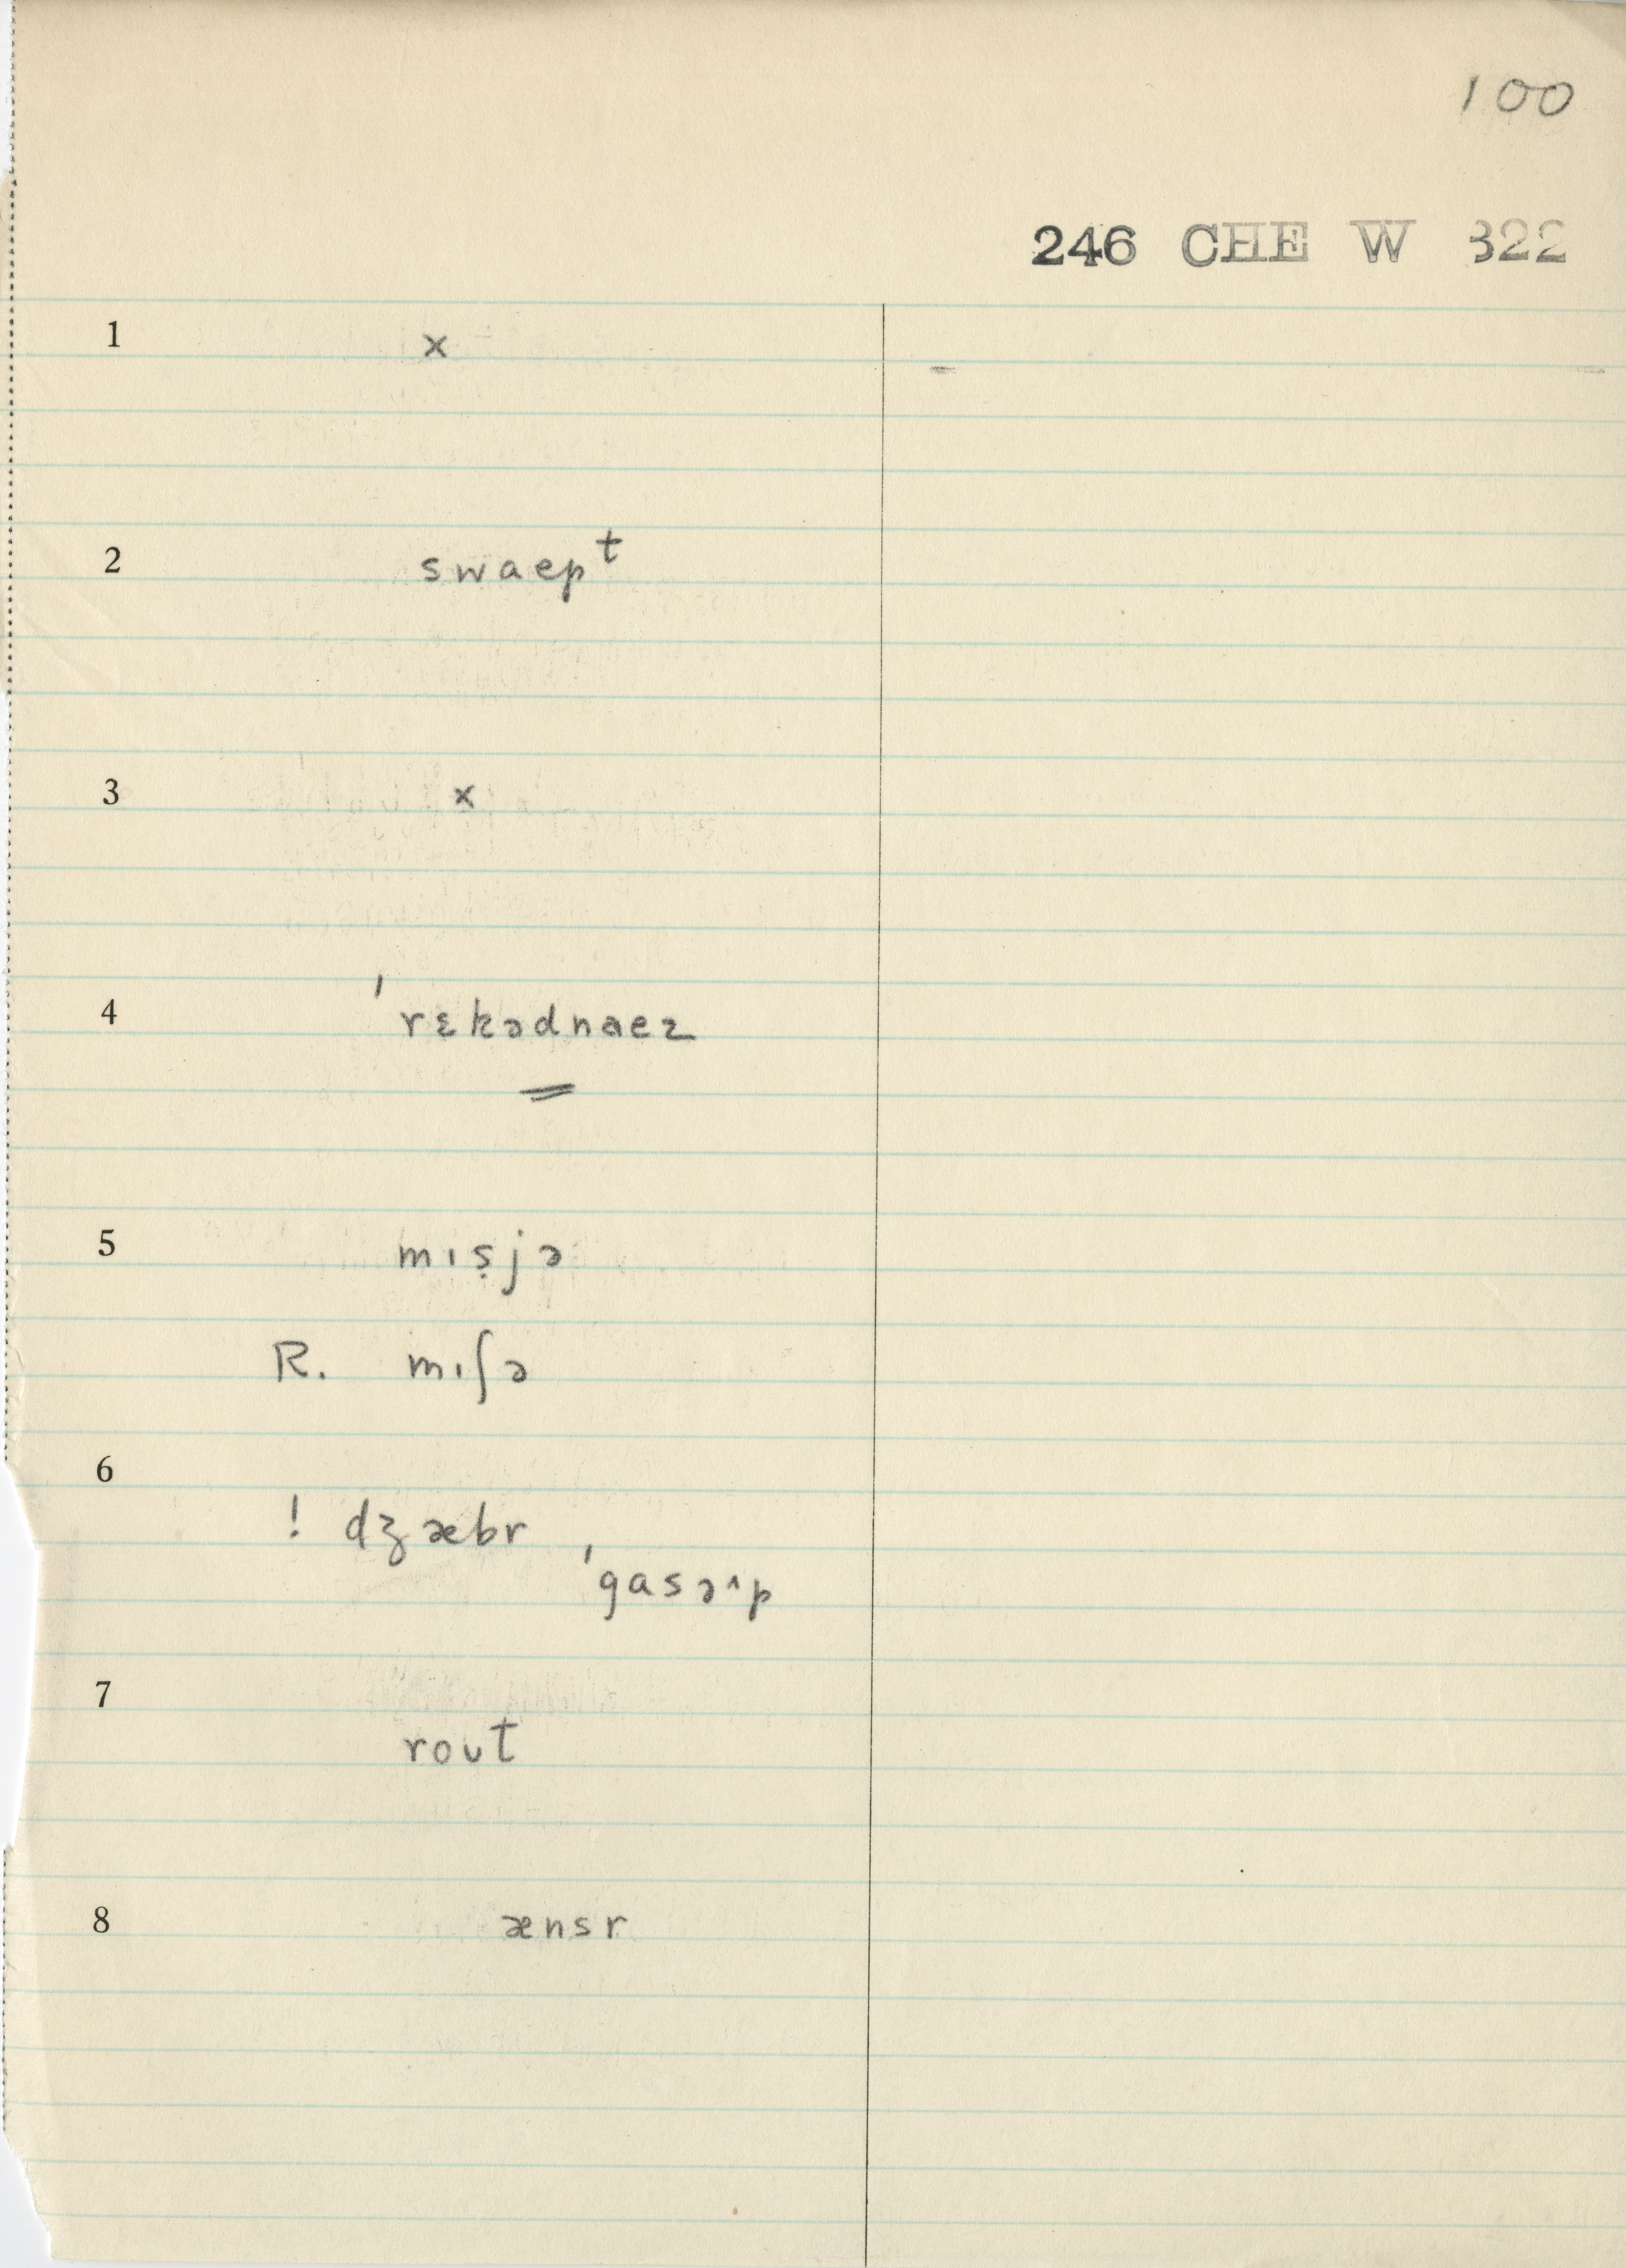 100
246 CHE W 322
1 x
2 swaepᵗ
3 x
4 ˈrɛkədnaez
5 mɪṣjə
R. mɪʃə
6
! dʒæbr
ˈgasəˆp
7
roʊt
8 ænsr